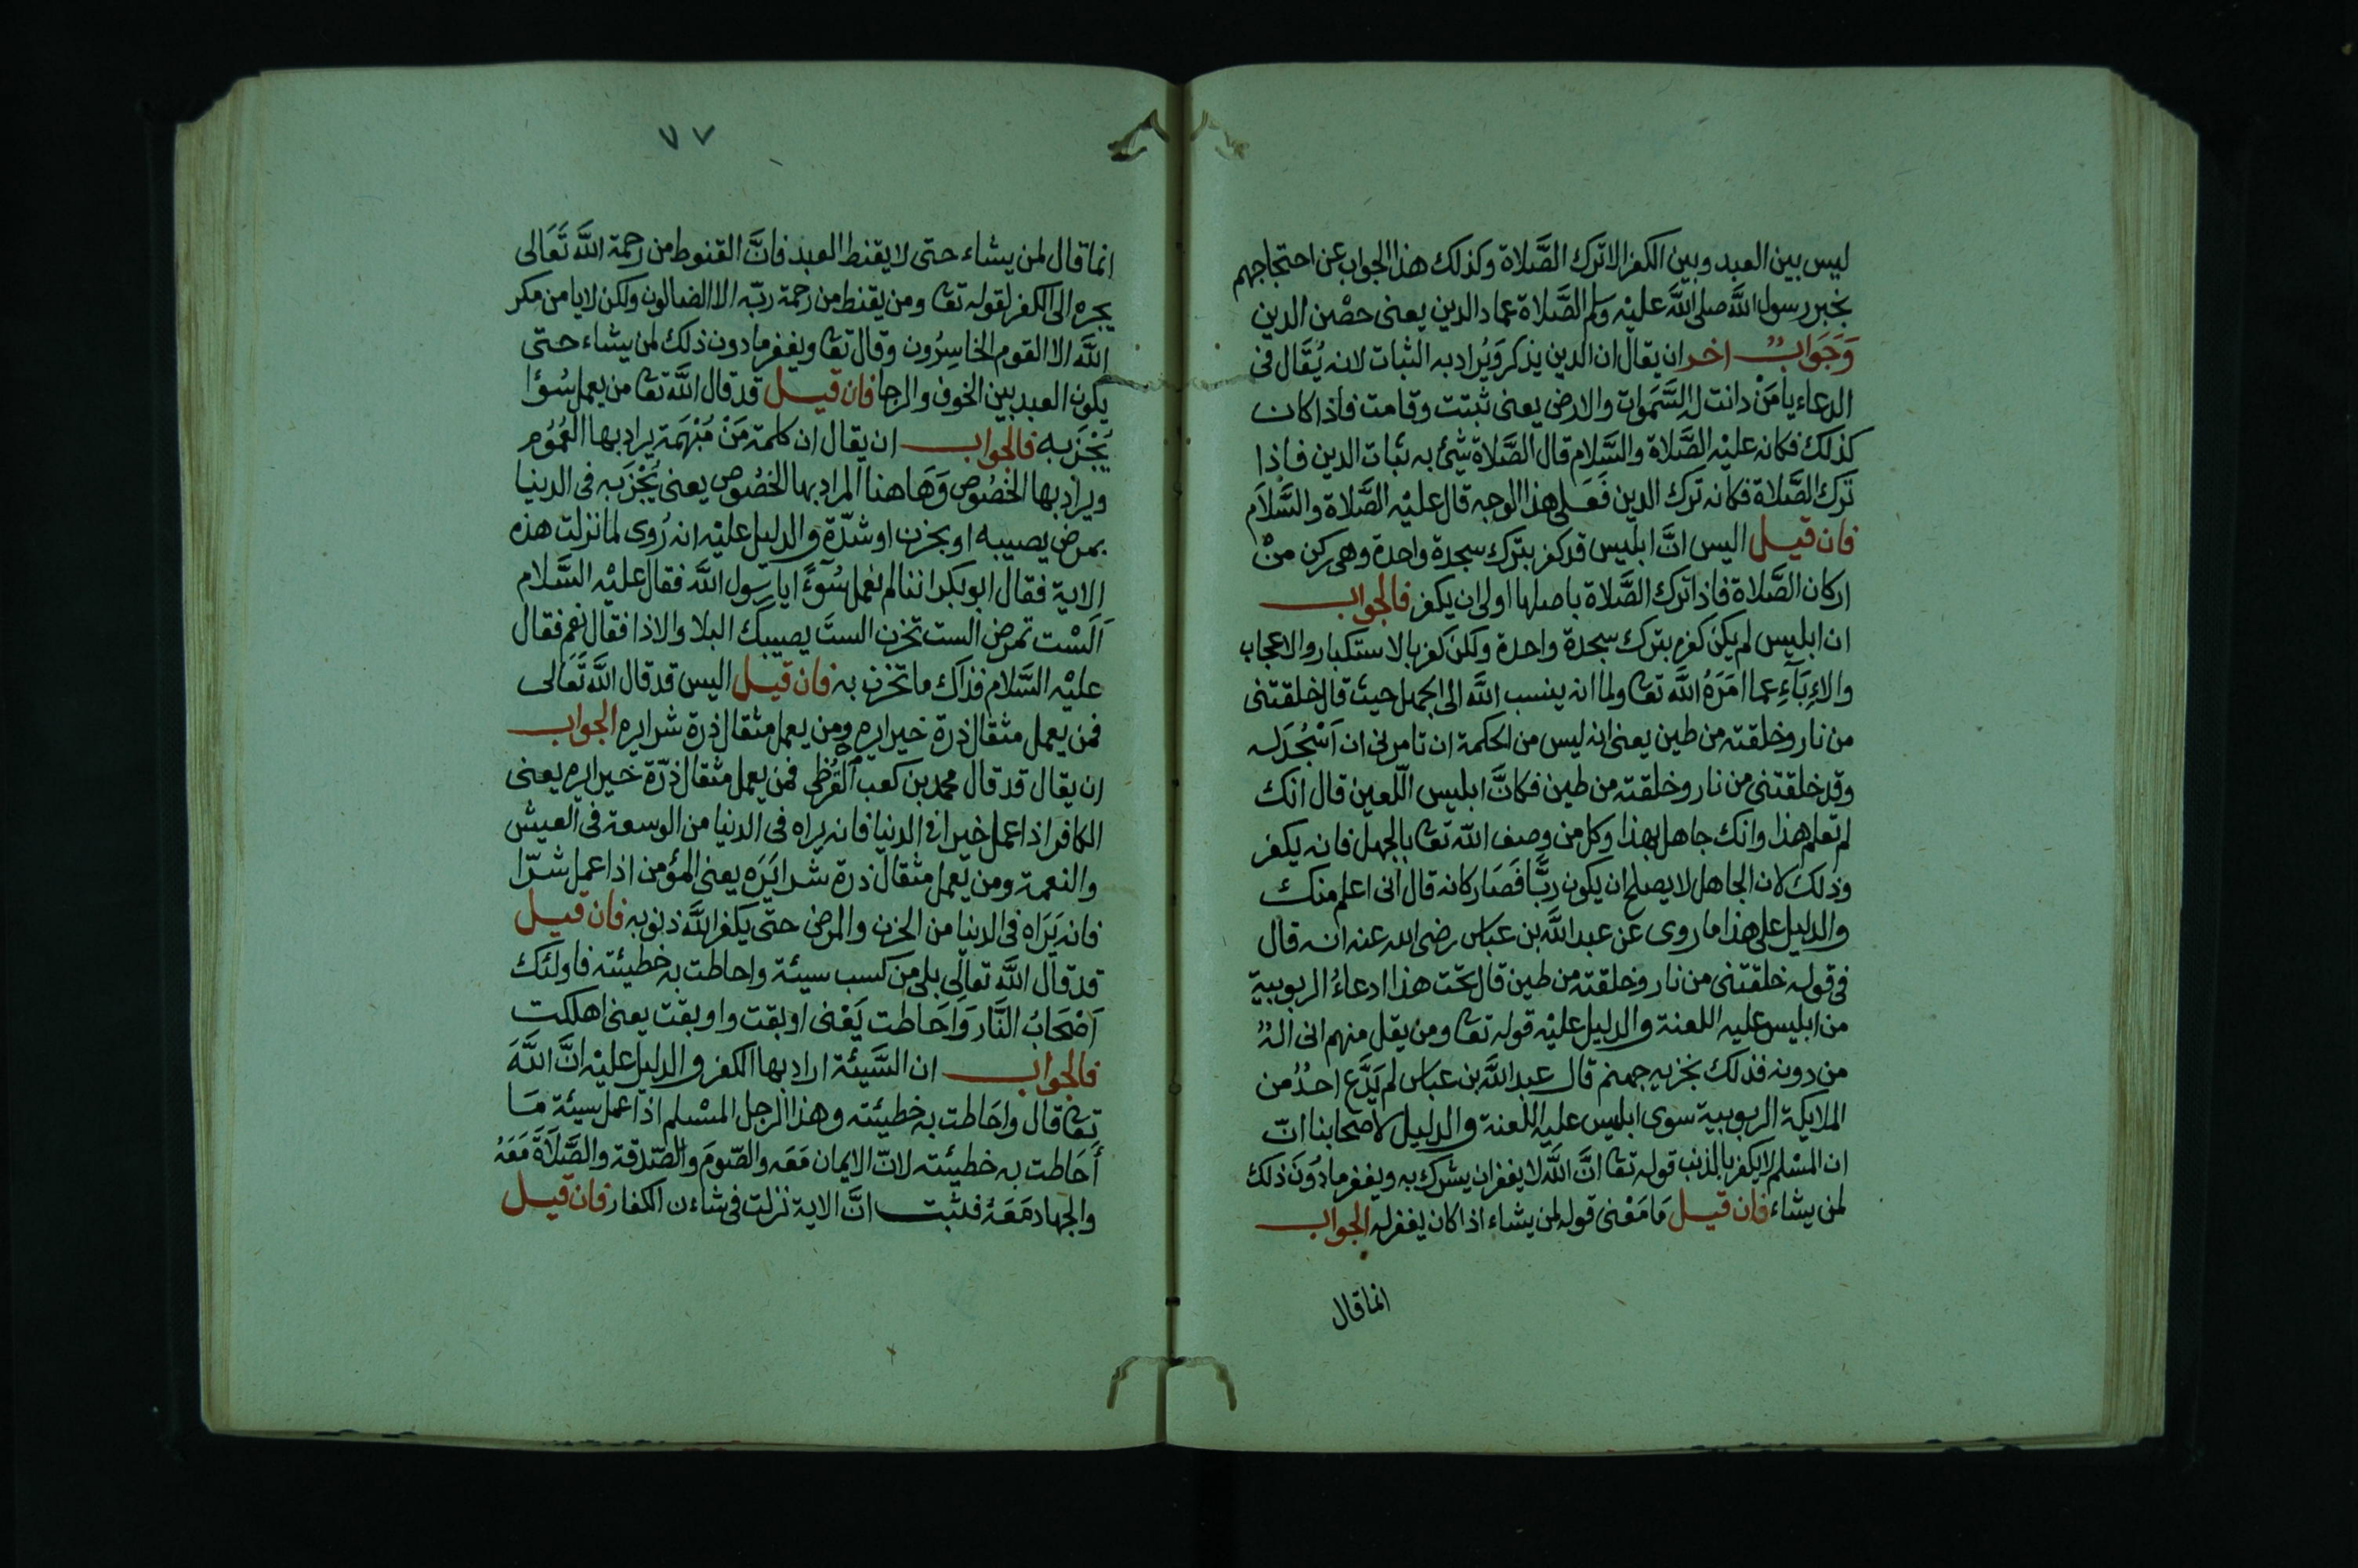 ليس بين العبد وبين الكفر الا ترك الصَّلاة وكذلك هذا الجواب عن احتجاجهم
بخبر رسول اللَّه صلى اللَّه عليْه وسلم الصَّلاة عماد الدين يعنى حصْن الدين
وَجَوابٌ اخر ان يقال ان الدين يذكر وَيُراد به الثبات لانه يُقَال فى
الدعاء يا مَنْ دانت له السَّمَوات والارض يعنى ثبتت وقامت فاذا كان
كذلك فكانه عليْه الصَّلاة والسَّلام قال الصَّلاة شئ به ثبات الدين فاذا
ترك الصَّلاة فكانه ترك الدين فَعَلى هذا الوجه قال عليْه الصَّلاة والسَّلاَم
فان قيل اليس انَّ ابليس قد كفر بترك سجدة واحدة وهى ركن منْ
اركان الصَّلاة فاذا ترك الصَّلاة باصلها اولى ان يكفر فالجواب
ان ابليس لم يكن كفره بترك سجدة واحدة ولكن كفر بالاستكبار والاعجاب
والاِبَآءِ عما امَرَهُ اللَّه تعا ولما انه ينسب اللَّه الى الجهل حيث قال خلقتنى
من نار وخلقته من طين يعنى انه ليس من الحكمة ان تامرنى ان اَسْجُدَ له
وقد خلقتنى من نار وخلقته من طين فكانَّ ابليس اللّعين قال انك
لم تعلم هذا وانك جاهل بهذا وكل من وصف اللّه تعا بالجهل فانه يكفر
وذلك لان الجاهل لا يصلح ان يكون ربًّا فَصَار كانه قال انى اعلم منك
والدليل على هذا ما روى عن عبد اللَّه بن عباس رضى الله عنه انه قال
فى قوله خلقتنى من نار وخلقته من طين قال تحت هذا ادعاءُ الربوبية
من ابليس عليه اللعنة والدليل عليْه قوله تعا ومن يقل منهم انى الهٌ
من دونه فذلك نجزيه جهنم قال عبد اللَّه بن عباس لم يَدَّعِ احدٌ من
الملايكة الربوبية سوى ابليس عليه اللعنة والدليل لاصحابنا انّ
ان المسْلم لا يكفر بالذنب قوله تعا انَّ اللَّه لا يغفر ان يشرك به ويغفر ما دُونَ ذلك
لمن يشاء فان قيل مَا مَعْنى قوله لمن يشاء اذا كان يغفر له الجواب
انما قال
٧٧
انما قال لمن يشاء حتى لا يقنط العبد فانَّ القنوط من رحمة اللَّه تَعَالى
يجره الى الكفر لقوله تعا ومن يقنط من رحمة ربّه الا الضالون ولكن لا يامن مكر
اللَّه الا القوم الخاسِرُون وقال تعا ويغفر ما دون ذلك لمن يشاء حتى
يكون العبد بين الخوف والرجا فان قيل قد قال اللَّه تعا من يعمل سُوْا
يُجْزَ به فالجواب ان يقال ان كلمة مَنْ مُبْهَمَة يراد بها العُمُوُم
ويراد بها الخصُوص وَهَاهنا المراد بها الخصُوص يعنى يُجْزَ به فى الدنيا
بمرض يصيبه او بحزن او شدّة والدليل عليْه انه رُوى لما نزلت هذه
الاية فقال ابو بكر اننا لم نعمل سُوءًا يا رسول اللَّه فقال عليْه السَّلام
اَلسْت تمرض الست تحزن الستَ يصيبك البلا والاذا فقال نعم فقال
عليْه السَّلام فذاك ما تجزن به فان قيل اليس قد قال اللَّه تَعَالى
فمن يعمل مثقال ذرة خيرا يره ومن يعمل مثقال ذرة شرا يره الجواب
ان يقال قد قال محمد بن كعب القُرظى فمن يعمل مثقال ذرّة خيرا يره يعنى
الكافر اذا عمل خيرا فى الدنيا فانه يراه فى الدنيا من الوسعة فى العيش
والنعمة ومن يعمل مثقال ذرة شرا يَرَه يعنى المؤمن اذا عمل شرّا
فانه يَرَاه فى الدنيا من الحزن والمرض حتى يكفر اللَّه ذنوبه فان قيل
قد قال اللَّه تعالى بلى من كسب سيئة واحاطت به خطيئته فاولئك
اَصْحَابُ النَّار وَاحَاطت يَعْنى اوبقت واوبقت يعنى اهلكت
فالجواب ان السَّيئة اراد بها الكفر والدليل عليْه انَّ اللَّهَ
تعا قال واحَاطت به خطيئته وهذا الرجل المسْلم اذا عمل سيئة مَا
أحَاطت به خطيئته لانّ الايمان مَعَه والصّومَ والصّدقة والصَّلاَةَ مَعَهُ
والجهاد مَعَهُ فثبت انَّ الاية نزلت فى شاءن الكفار فان قيل